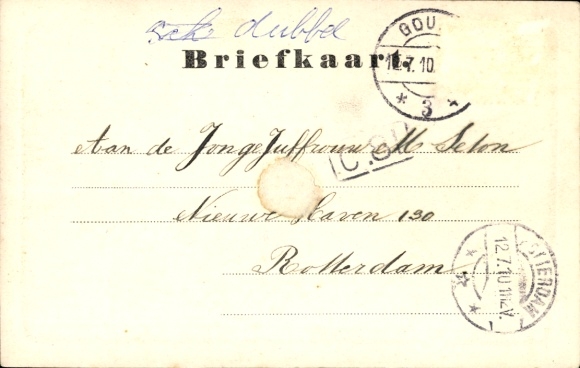 dubbel
Briefkaart.
GOU
12.7.10.
3
Aan de Jonge Juffrouw M Seton
I.C.80
Nieuwe Haven 130
Rotterdam
12.7.10 11-12V.